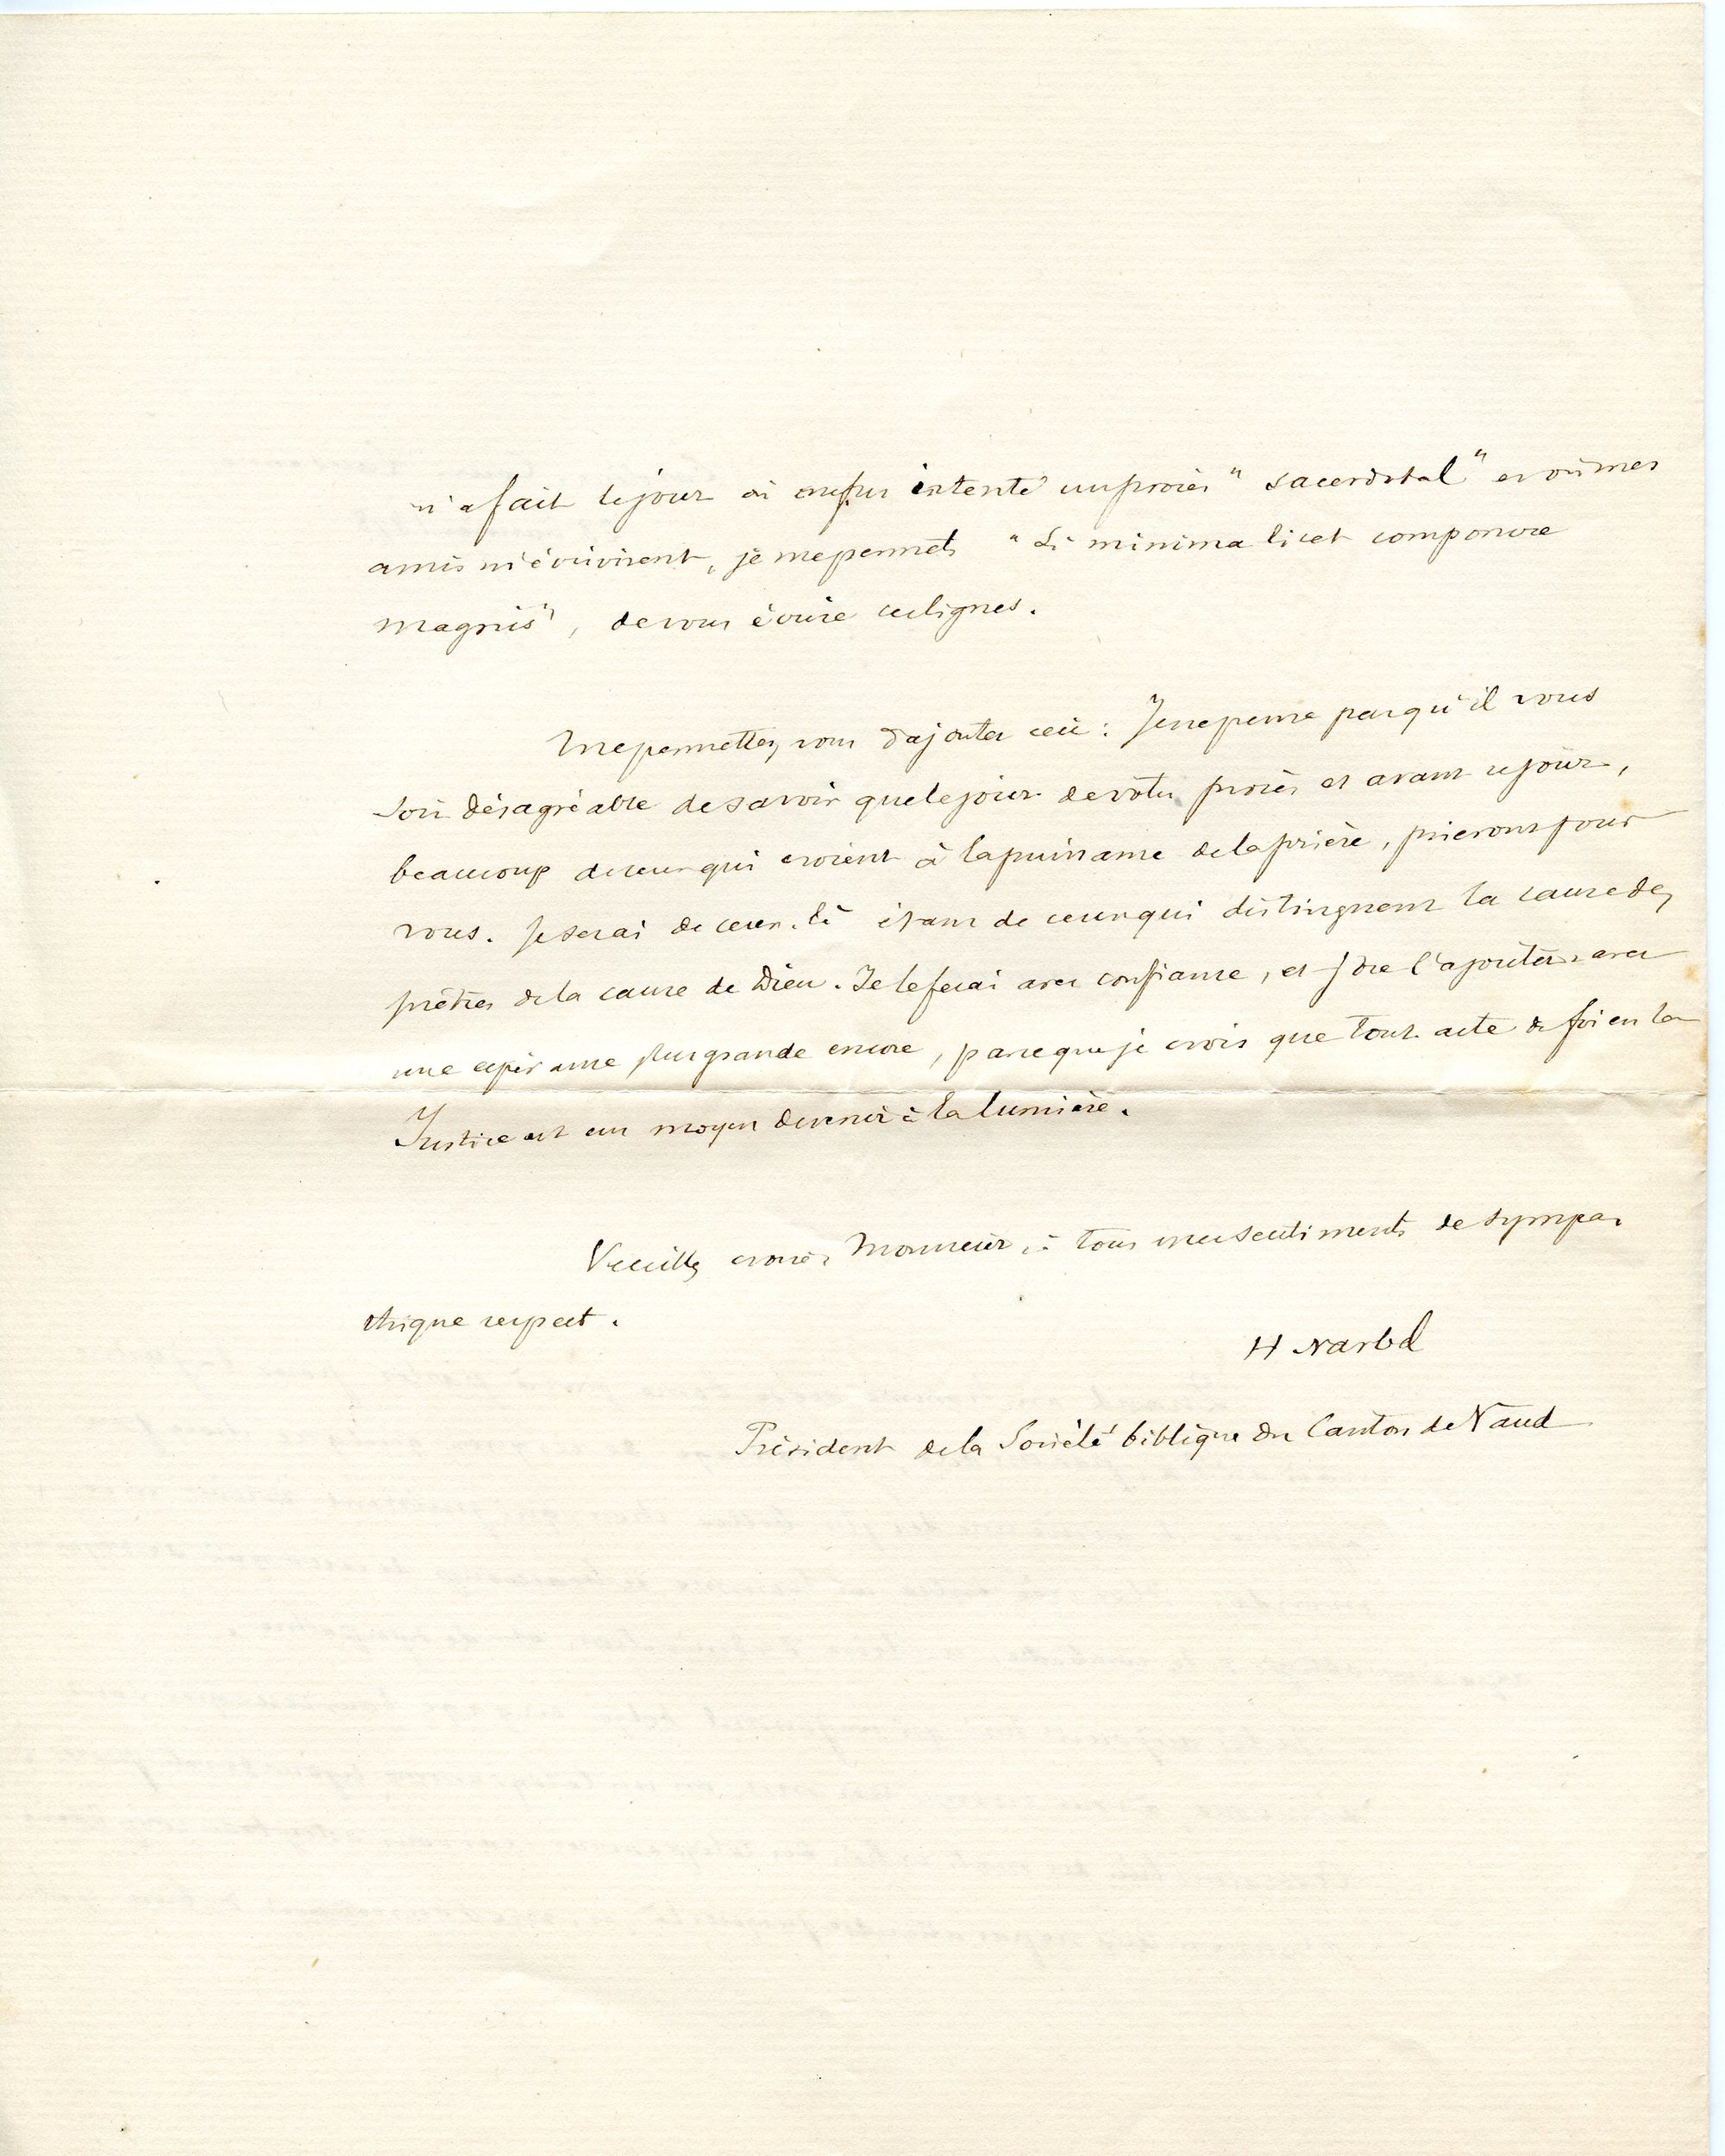 m'a fait le jour où me fut intenté un procès " sacerdotal " et où mes
amis m'écrivirent, je me permets " Si minima licet componere
magnis ", de vous écrire ces lignes.
Me permettez vous d'ajouter ceci : Je ne pense pas qu'il vous
soit désagréable de savoir que le jour de votre procès et avant ce jour,
beaucoup de ceux qui croient à la puissance de la prière, prieront pour
vous. Je serai de ceux-là étant de ceux qui distinguent la cause des
prêtres de la cause de Dieu. Je le ferai avec confiance, et j'ose l'ajouter, avec
une espérance plus grande encore, parce que je crois que tout acte de foi en la
Justice est un moyen de venir à la lumière.
Veuillez croire, Monsieur, à tous mes sentiments de sympa-
thique respect.
H Narbel
Président de la Société biblique du Canton de Vaud